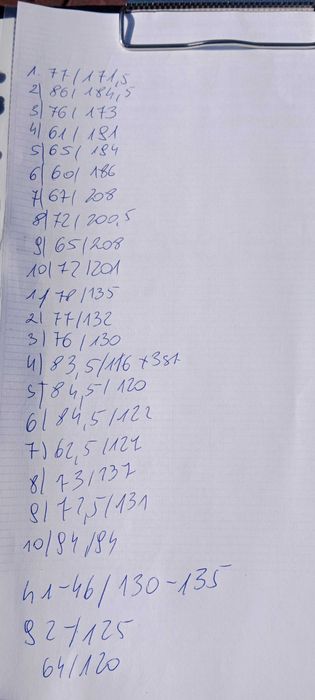 1. 77/171,5
2) 86/184,5
3) 76/173
4) 61/191
5) 65/194
6) 60/186
7) 67/208
8) 72/200,5
9) 65/208
10) 72/201
1) 78/135
2) 77/132
3) 76/130
4) 83,5/116 +3st
5) 84,5/120
6) 84,5/122
7) 62,5/121
8) 73/137
9) 72,5/131
10) 94/94
41-46/130-135
92-/125
64/120